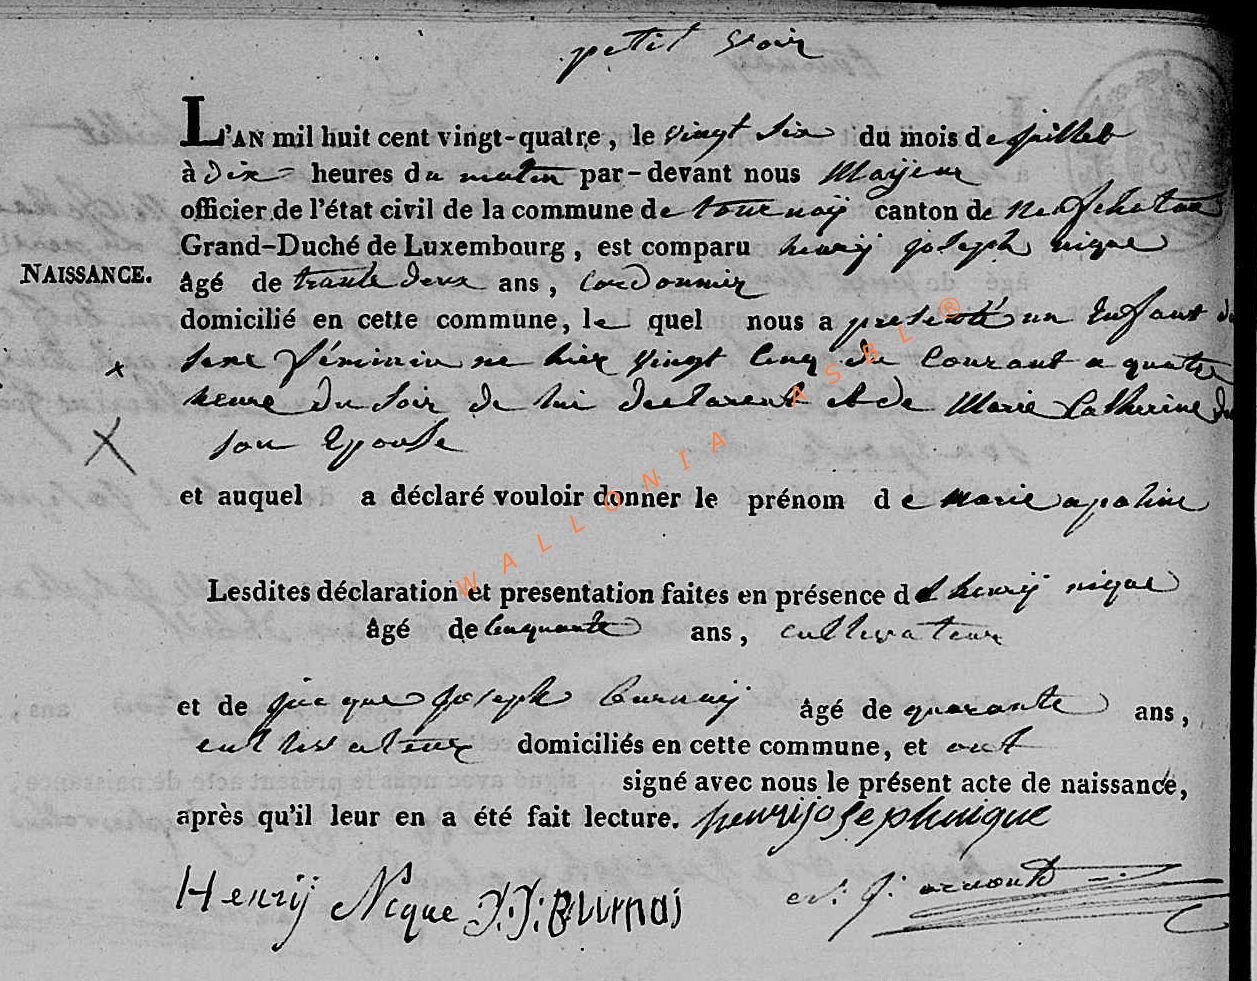 petit voir
L'AN mil huit cent vingt-quatre, le vingt six du mois de juillet
à dix heures du matin par-devant nous Mayeur
officier de l'état civil de la commune de tournay canton de neufchateau
Grand-Duché de Luxembourg, est comparu henrij joseph nique
NAISSANCE.
âgé de trante deux ans, Cordonnier
domicilié en cette commune, le quel nous a presenté un Enfant du
sexe féminin ne hier vingt Cinq du Courant a quatre
heure du soir de lui declarent et de Marie Catherine
son Epouse
et auquel a déclaré vouloir donner le prénom de Marie apoline
Lesdites déclaration et presentation faites en présence de henrij nique
âgé de Cinquante ans, cultivateur
et de jacque joseph Burnaij âgé de quarante ans,
cultivateur domiciliés en cette commune, et ont
signé avec nous le présent acte de naissance,
après qu'il leur en a été fait lecture. henrijosephnique
Henrij Nicque J.J. Burnai
WALLONIA ASBL ®